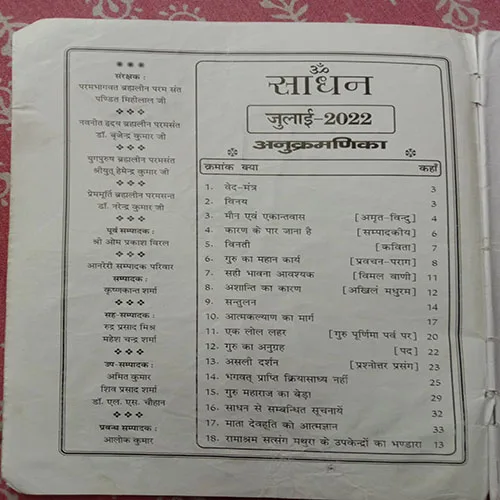 संरक्षक :
परमभागवत ब्रह्मलीन परम संत
पण्डित मिहीलाल जी
नवनीत हृदय ब्रह्मलीन परमसंत
डॉ. बृजेन्द्र कुमार जी
युगपुरुष ब्रह्मलीन परमसंत
श्रीयुत् हेमेन्द्र कुमार जी
प्रेममूर्ति ब्रह्मलीन परमसन्त
डॉ. नरेन्द्र कुमार जी
पूर्व सम्पादक :
श्री ओम प्रकाश विरल
आनरेरी सम्पादक परिवार
सम्पादक :
कृष्णकान्त शर्मा
सह-सम्पादक :
रुद्र प्रसाद मिश्र
महेश चन्द्र शर्मा
उप-सम्पादक :
अमित कुमार
शिव प्रसाद शर्मा
डॉ. एल. एस. चौहान
प्रबन्ध सम्पादक :
आलोक कुमार
ॐ
साधन
जुलाई-2022
अनुक्रमणिका
क्रमांक क्या कहाँ
1. वेद-मंत्र 3
2. विनय 3
3. मौन एवं एकान्तवास [अमृत-विन्दु] 4
4. कारण के पार जाना है [सम्पादकीय] 6
5. विनती [कविता] 7
6. गुरु का महान कार्य [प्रवचन-पराग] 8
7. सही भावना आवश्यक [विमल वाणी] 11
8. अशान्ति का कारण [अखिलं मधुरम] 12
9. सन्तुलन 14
10. आत्मकल्याण का मार्ग 17
11. एक लोल लहर [गुरु पूर्णिमा पर्व पर] 20
12. गुरु का अनुग्रह [पद] 22
13. असली दर्शन [प्रश्नोत्तर प्रसंग] 23
14. भगवत् प्राप्ति क्रियासाध्य नहीं 25
15. गुरु महाराज का बेड़ा 29
16. साधन से सम्बन्धित सूचनायें 32
17. माता देवहूति को आत्मज्ञान 33
18. रामाश्रम सत्संग मथुरा के उपकेन्द्रों का भण्डारा 13